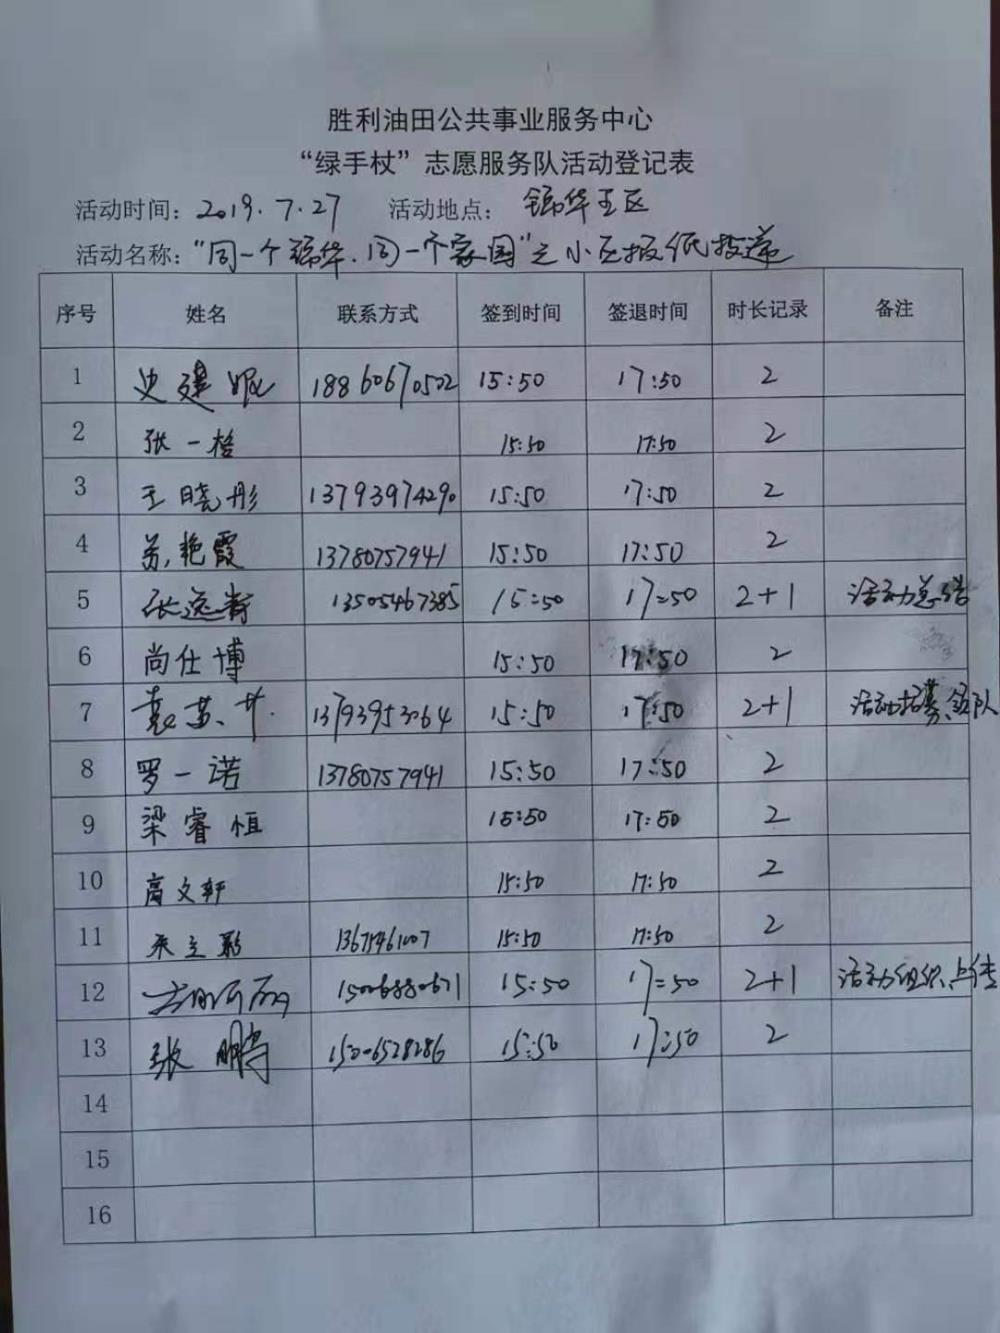 胜利油田公共事业服务中心
“绿手杖”志愿服务队活动登记表
活动时间：2019.7.27 活动地点：锦华王区
活动名称：“同一个锦华.同一个家国”之小区报纸投递
序号 姓名 联系方式 签到时间 签退时间 时长记录 备注
1 史建妮 18860670502 15:50 17:50 2
2 张一格 15:50 17:50 2
3 王晓彤 13793974290 15:50 17:50 2
4 苏艳霞 13780757941 15:50 17:50 2
5 张 13505467385 15:50 17:50 2+1 活动总结
6 尚仕博 15:50 17:50 2
7 袁苏 13793953064 15:50 17:50 2+1 活动招募、领队
8 罗一诺 13780757941 15:50 17:50 2
9 梁睿恒 15:50 17:50 2
10 高文轩 15:50 17:50 2
11 15:50 17:50 2
12 15006880671 15:50 17:50 2+1 活动组织、上传
13 张鹏 15006528286 15:50 17:50 2
14
15
16